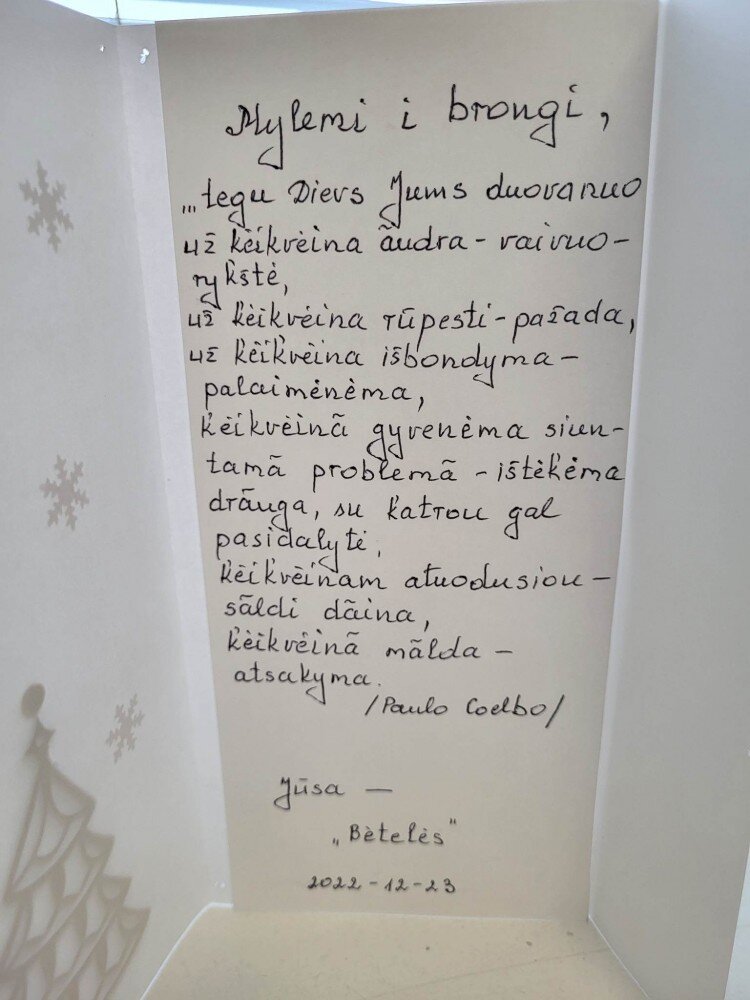 Mylemi i brongi,
„...tegu Dievs Jums duovanuo
už kėikvėina āudra - vaivuo-
rykštė,
už kėikvėina rūpesti - pažada,
už kėikvėina išbondyma -
palaimėnėma,
kėikvėinā gyvenėma siun-
tamā problemā - ištėkėma
drāuga, su katrou gal
pasidalytė,
kėikvėinam atuodusiou -
sāldi dāina,
kėikvėinā mālda -
atsakyma.
/Paulo Coelbo/
Jūsa —
„Bėtelės"
2022-12-23